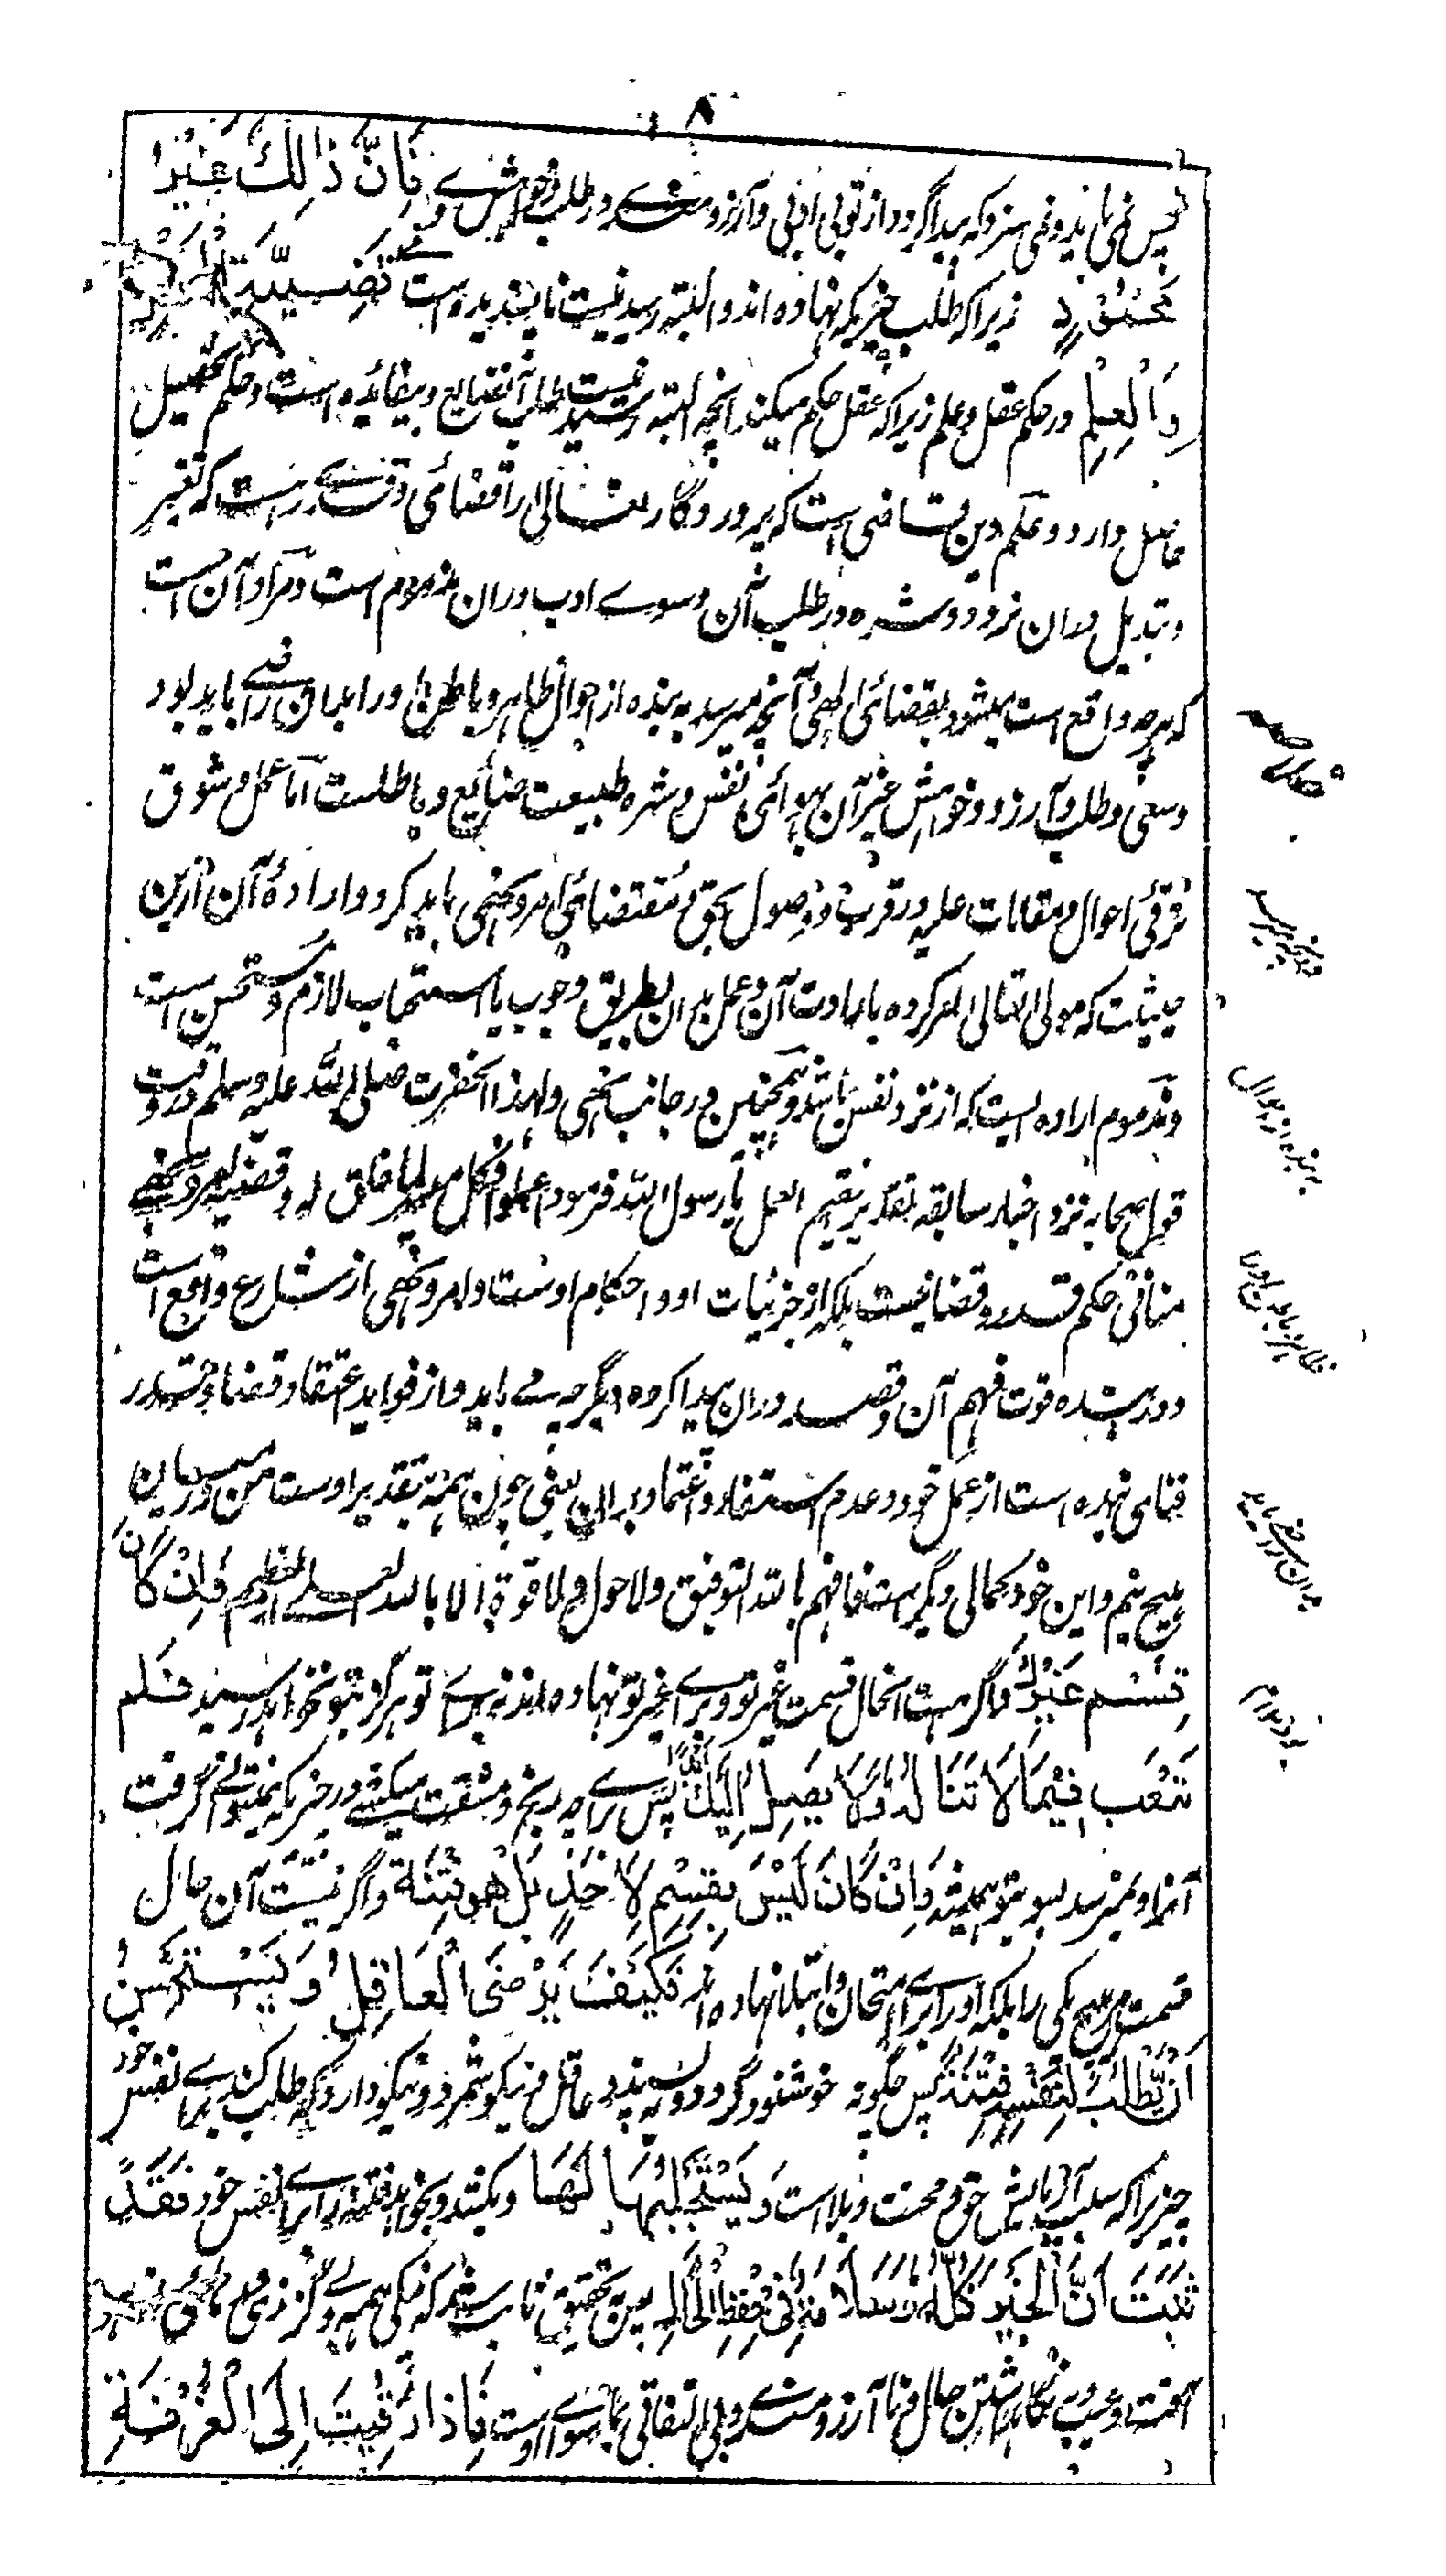 پس نمی باید و نمی سزد که پیدا گردد از تو بی ادبی و آرزومندی در طلب و خواهش وی فَاِنَّ ذَالِكَ غَیْرُ
زیرا که طلب چیزیکه نهاده اند و البته رسیدنیست ناپسندیده است قَضِیَّةِ
وَالْعِلْمِ در حکم عقل و علم زیرا که عقل حکم میکند آنچه البته رسیدنیست طلب آن ضایع و بیفائده است و حکم تحصیل
حاصل دارد و علم دین قاضی است که پروردگار تعالی را قضائی و قدریست که تغیر
و تبدیل دران نرود و شره در طلب آن و سوے ادب دران مذموم است و مراد آن است
که هرچه واقع است میشود بقضائی الهی و آنچه میرسد به بنده از احوال ظاهر و باطن را بدان راضی باید بود
و سعی و طلب و آرزو و خواهش غیر آن بهوائی نفس و شره طبیعت ضایع و باطلست اما عمل و شوق
ترقی احوال و مقامات علیه در قرب و وصول بحق مقتضائی امر و نهی باید کرد و ارادهٔ آن ازین
حیثیت که مولی تعالی امر کرده بارادت آن و عمل بدان بطریق وجوب یا استحباب لازم و مستحسن است
و مذموم اراده ایست که از نزد نفس باشد و همچنین در جانب نهی و لهذا آنحضرت صلی الله علیه وسلم در وقت
قول صحابه نزد اخبار سابقه تقدیر ففیم العمل یا رسول الله فرمود اعملوا فکل میسر لما خلق له و قضیه امر و نهی
منافی حکم قدر و قضا نیست بلکه از جزئیات او و احکام اوست و امر و نهی از شارع واقع است
و در بنده قوت فهم آن و قصد دران پیدا کرده دیگر چه می باید و از فواید اعتقاد قضا و قدر
فنای بنده است از عمل خود و عدم استقلال و اعتماد بران یعنی چون همه بتقدیر اوست من درمیان
هیچ نیم و این خود کمالی دیگر است فافهم بالله التوفیق ولا حول ولا قوة الا بالله العلی العظیم وَاِنْ كَانَ
قِسْمَ غَیْرِكَ و اگر هست آنحال قسمت غیر تو و برای غیر تو نهاده اند نه برای تو هرگز بتو نخواهد رسید فَلِمَ
تَتْعَبُ فِیْمَا لَا تَنَالُهُ وَلَا یَصِلُ اِلَیْكَ اَبَدًا پس برای چه رنج و مشقت میکشی در چیزیکه نمیتوانی گرفت
آنرا و نمیرسد بسوی تو همیشه وَاِنْ كَانَ لَیْسَ بِقِسْمٍ لِاَحَدٍ بَلْ هُوَ فِتْنَةٌ و اگر نیست آن حال
قسمت هیچ یکی را بلکه او را برای امتحان و ابتلا نهاده اند فَكَیْفَ یَرْضَى الْعَاقِلُ وَ یَسْتَحْسِنُ
اَنْ یَّطْلُبَ لِنَفْسِهِ فِتْنَةً پس چگونه خوشنود گردد و به پسندد عاقل و نیکو شمرد و نیکو دارد که طلب کند برای نفس خود
چیزیرا که سبب آزمایش حق و محنت و بلا است وَ یَسْتَجْلِبُهَا لَهَا و بکشد و بخواهد فتنه را برای نفس خود فَقَدْ
ثَبَتَ اَنَّ الْخَیْرَ كُلَّهُ وَ السَّلَامَةَ فِیْ حِفْظِ الْحَالِ پس بتحقیق ثابت شد که نیکی همه وی
آفت و عیب نگاه داشتن حال و نا آرزومندی و بی التفاتی بماسوای اوست فَاِذَا رُقِّیْتَ اِلَى الْغُرْفَةِ